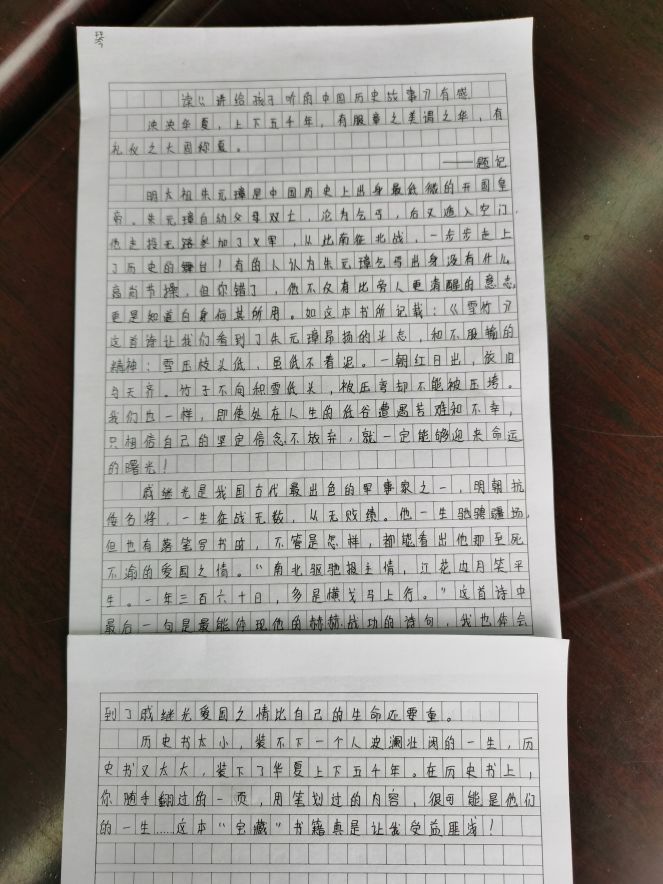 琴
读《讲给孩子听的中国历史故事》有感
泱泱华夏，上下五千年，有服章之美谓之华，有
礼仪之大因称夏。
——题记
明太祖朱元璋是中国历史上出身最低微的开国皇
帝。朱元璋自幼父母双亡，沦为乞丐，后又遁入空门，
他走投无路参加了义军，从此南征北战，一步步走上
了历史的舞台！有的人认为朱元璋乞丐出身没有什么
高尚节操，但你错了，他不仅有比常人更清醒的意志，
更是知道自身何其所用。如这本书所记载：《雪竹》
这首诗让我们看到了朱元璋昂扬的斗志，和不服输的
精神：雪压枝头低，虽低不着泥。一朝红日出，依旧
与天齐。竹子不向积雪低头，被压弯却不能被压垮。
我们也一样，即使处在人生的低谷遭遇苦难和不幸，
只相信自己的坚定信念不放弃，就一定能够迎来命运
的曙光！
戚继光是我国古代最出色的军事家之一，明朝抗
倭名将，一生征战无数，从无败绩。他一生驰骋疆场，
但也有落笔写书时，不管是怎样，都能看出他那至死
不渝的爱国之情。“南北驱驰报主情，江花边月笑平
生。一年三百六十日，多是横戈马上行。”这首诗中
最后一句是最能体现他的赫赫战功的诗句，我也体会
到了戚继光爱国之情比自己的生命还要重。
历史书太小，装不下一个人波澜壮阔的一生，历
史书又太大，装下了华夏上下五千年。在历史书上，
你随手翻过的一页，用笔划过的内容，很可能是他们
的一生……这本“宝藏”书籍真是让我受益匪浅！